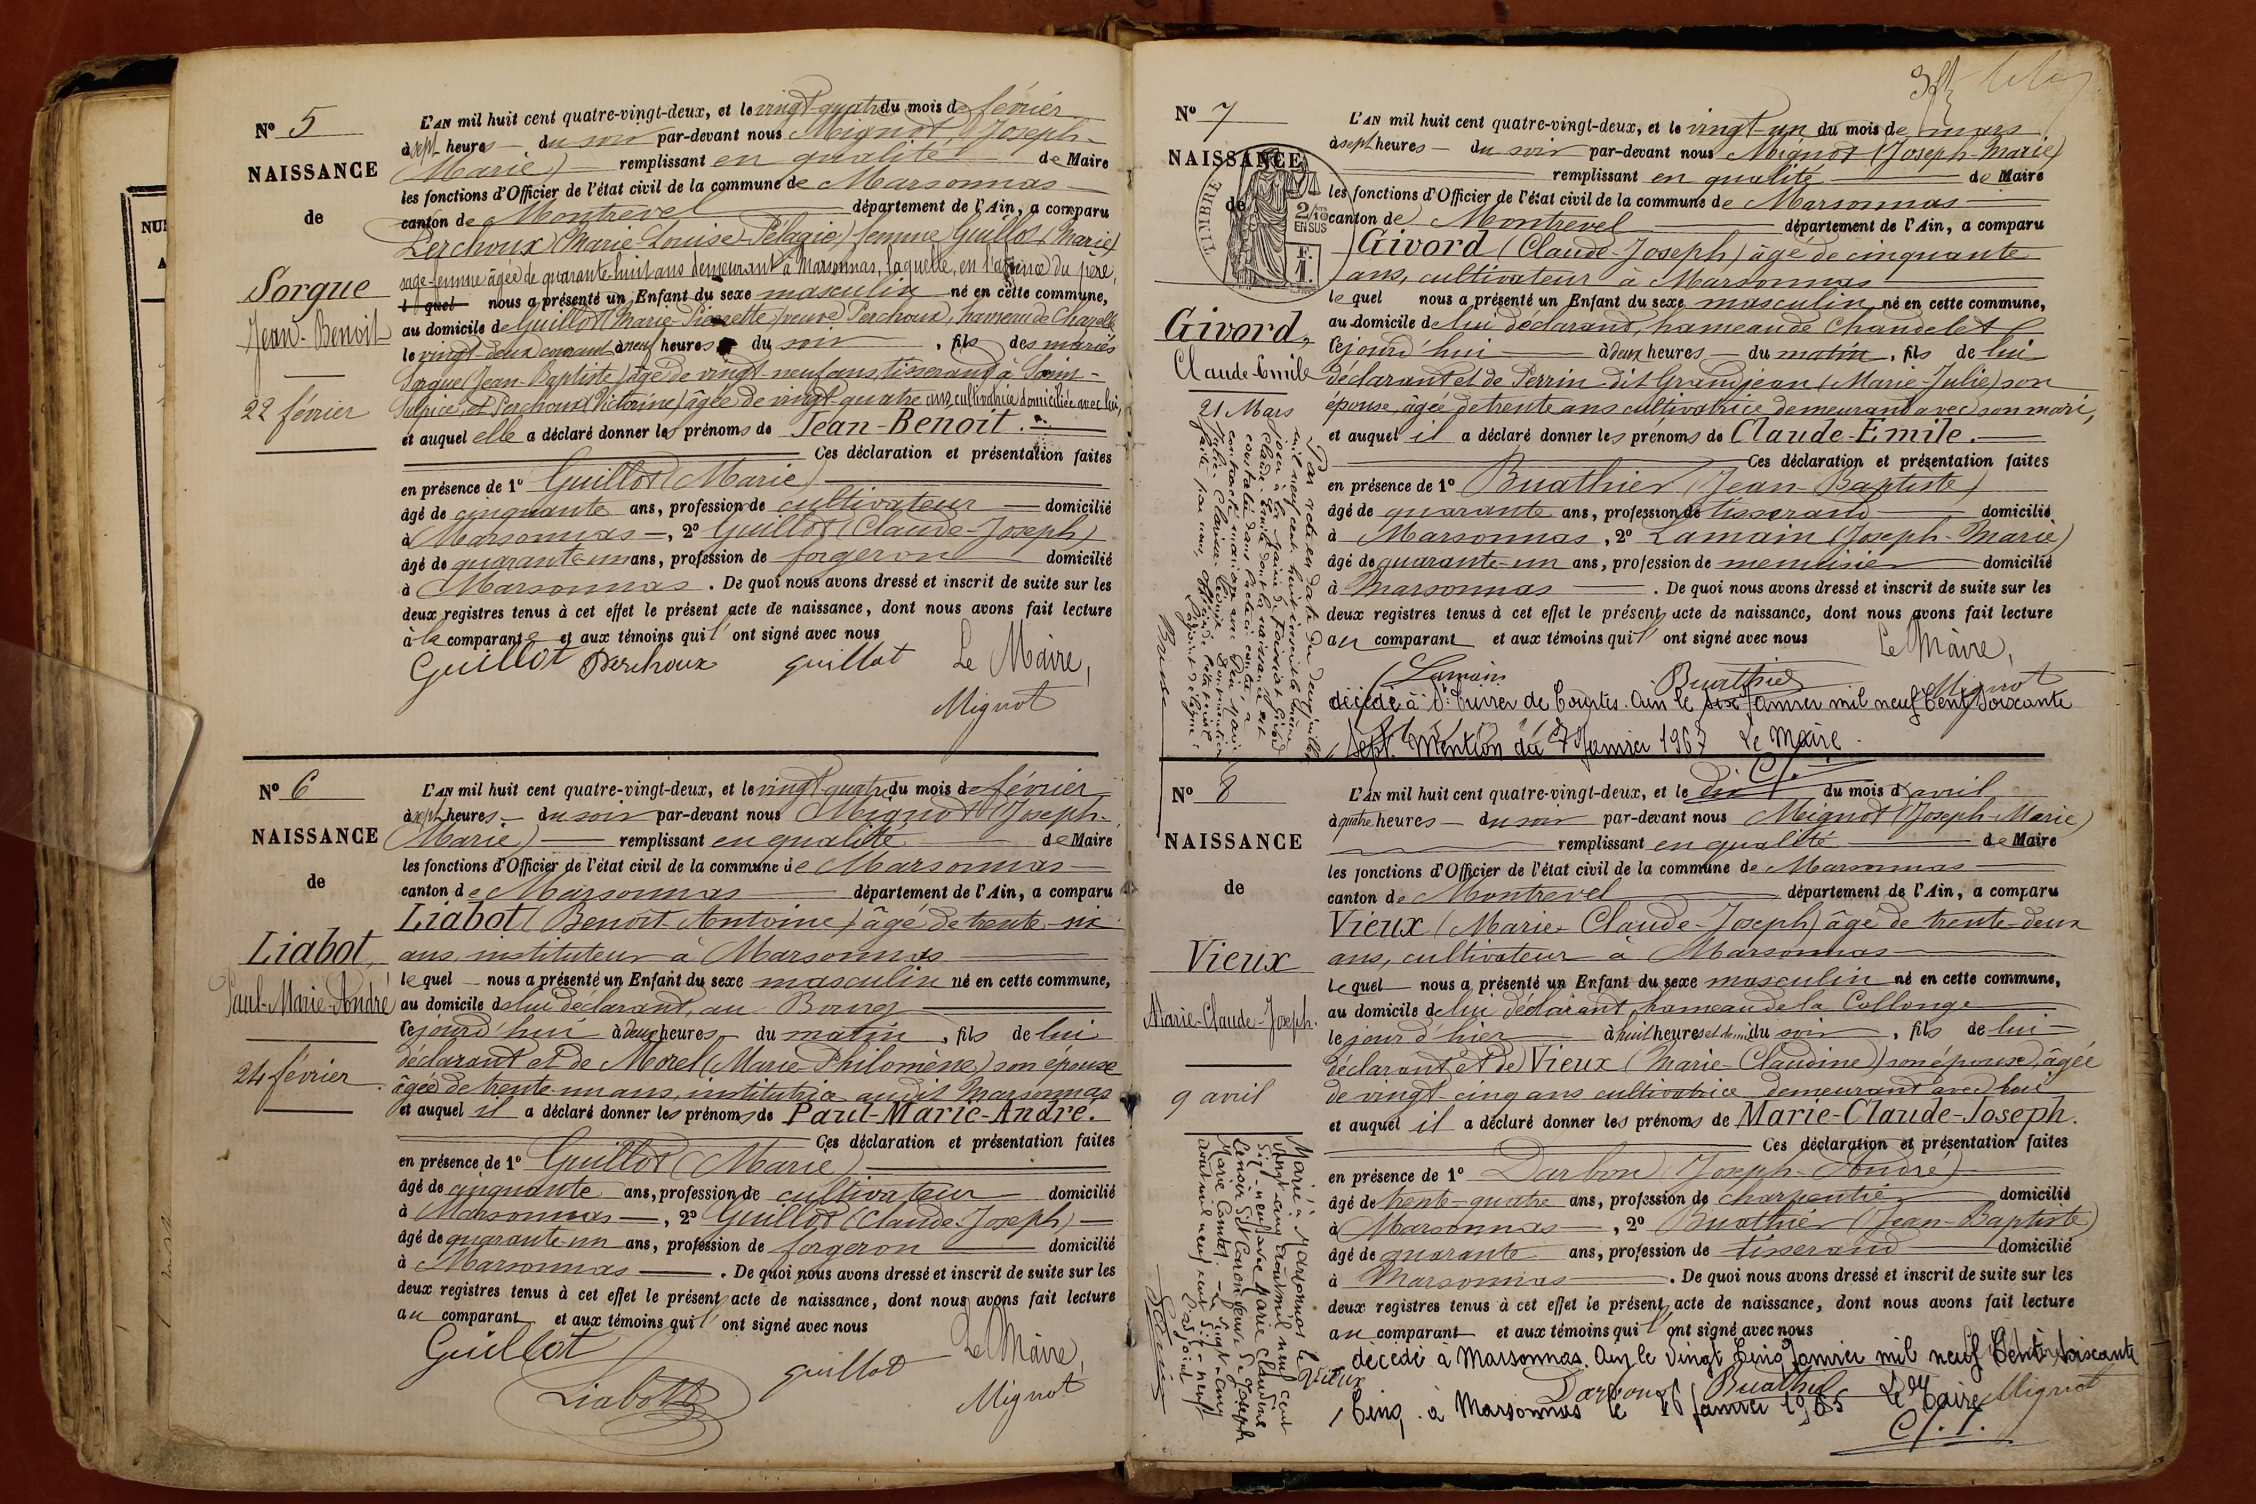 NUM
A
N° 5
NAISSANCE
de
Sorgue
Jean-Benoit
22 février
L'AN mil huit cent quatre-vingt-deux, et le vingt-quatre du mois de février
à sept heures du soir par-devant nous Mignot (Joseph-
Marie) remplissant en qualité de Maire
les fonctions d'Officier de l'état civil de la commune de Marsonnas
canton de Montrevel département de l'Ain, a comparu
Perchoux (Marie-Louise-Pélagie) femme Guillot (Marie)
sage-femme âgée de quarante-huit ans demeurant à Marsonnas, laquelle, en l'absence du père,
l quel nous a présenté un Enfant du sexe masculin né en cette commune,
au domicile de Guillot (Marie-Pierrette) veuve Perchoux, hameau de Chazelle
le vingt-deux courant à neuf heures du soir, fils des mariés
Sorgue (Jean-Baptiste) âgé de vingt-neuf ans, tisserand à Saint-
Sulpice, et Perchoux (Victorine) âgée de vingt-quatre ans, cultivatrice domiciliée avec lui,
et auquel elle a déclaré donner les prénoms de Jean-Benoit.
Ces déclaration et présentation faites
en présence de 1° Guillot (Marie)
âgé de cinquante ans, profession de cultivateur domicilié
à Marsonnas, 2° Guillot (Claude-Joseph)
âgé de quarante-un ans, profession de forgeron domicilié
à Marsonnas. De quoi nous avons dressé et inscrit de suite sur les
deux registres tenus à cet effet le présent acte de naissance, dont nous avons fait lecture
à la comparante et aux témoins qui l'ont signé avec nous
Guillot Perchoux guillot Le Maire,
Mignot
N° 6
NAISSANCE
de
Liabot,
Paul-Marie-André
24 février.
L'AN mil huit cent quatre-vingt-deux, et le vingt-quatre du mois de février
à sept heures du soir par-devant nous Mignot (Joseph-
Marie) remplissant en qualité de Maire
les fonctions d'Officier de l'état civil de la commune de Marsonnas
canton de Marsonnas département de l'Ain, a comparu
Liabot (Benoit-Antoine) âgé de trente-six
ans, instituteur à Marsonnas
lequel nous a présenté un Enfant du sexe masculin né en cette commune,
au domicile de lui déclarant, au Bourg
cejourd'hui à deux heures du matin, fils de lui
déclarant et de Morel (Marie-Philomène) son épouse
âgée de trente-un ans, institutrice audit Marsonnas
et auquel il a déclaré donner les prénoms de Paul-Marie-André.
Ces déclaration et présentation faites
en présence de 1° Guillot (Marie)
âgé de cinquante ans, profession de cultivateur domicilié
à Marsonnas, 2° Guillot (Claude-Joseph)
âgé de quarante-un ans, profession de forgeron domicilié
à Marsonnas. De quoi nous avons dressé et inscrit de suite sur les
deux registres tenus à cet effet le présent acte de naissance, dont nous avons fait lecture
au comparant et aux témoins qui l'ont signé avec nous
Guillot Le Maire,
Liabot guillot Mignot
N° 7
NAISSANCE
de
TIMBRE
2/10 EN SUS
F. 1.
Givord,
Claude-Emile
21 Mars
L'AN mil huit cent quatre-vingt-deux, et le vingt-un du mois de mars
à sept heures du soir par-devant nous Mignot (Joseph-Marie)
remplissant en qualité de Maire
les fonctions d'Officier de l'état civil de la commune de Marsonnas
canton de Montrevel département de l'Ain, a comparu
Givord (Claude-Joseph) âgé de cinquante
ans, cultivateur à Marsonnas
lequel nous a présenté un Enfant du sexe masculin né en cette commune,
au domicile de lui déclarant, hameau de Chandelet
cejourd'hui à deux heures du matin, fils de lui
déclarant et de Perrin dit Grandjean (Marie-Julie) son
épouse, âgée de trente ans cultivatrice demeurant avec son mari,
et auquel il a déclaré donner les prénoms de Claude-Emile.
Ces déclaration et présentation faites
en présence de 1° Buathier (Jean-Baptiste)
âgé de quarante ans, profession de tisserand domicilié
à Marsonnas, 2° Lamain (Joseph-Marie)
âgé de quarante-un ans, profession de menuisier domicilié
à Marsonnas. De quoi nous avons dressé et inscrit de suite sur les
deux registres tenus à cet effet le présent acte de naissance, dont nous avons fait lecture
au comparant et aux témoins qui l'ont signé avec nous
Le Maire,
Lamain Buathier Mignot
décédé à St Trivier de Courtes. Ain le six Janvier mil neuf Cent Soixante
Sept. Mention du 7 Janvier 1967 Le Maire.
Par acte en date du
mil neuf cent huit
Claude-Emile dont la naissance est
constatée dans l'acte ci-contre, a
contracté mariage avec
Brune
N° 8
NAISSANCE
de
Vieux
Marie-Claude-Joseph.
9 avril
L'AN mil huit cent quatre-vingt-deux, et le dix du mois d'avril
à quatre heures du soir par-devant nous Mignot (Joseph-Marie)
remplissant en qualité de Maire
les fonctions d'Officier de l'état civil de la commune de Marsonnas
canton de Montrevel département de l'Ain, a comparu
Vieux (Marie-Claude-Joseph) âgé de trente-deux
ans, cultivateur à Marsonnas
lequel nous a présenté un Enfant du sexe masculin né en cette commune,
au domicile de lui déclarant, hameau de la Collonge
le jour d'hier à huit heures et demi du soir, fils de lui
déclarant et de Vieux (Marie-Claudine) son épouse, âgée
de vingt-cinq ans cultivatrice demeurant avec lui
et auquel il a déclaré donner les prénoms de Marie-Claude-Joseph.
Ces déclaration et présentation faites
en présence de 1° Darbon (Joseph-André)
âgé de trente-quatre ans, profession de charpentier domicilié
à Marsonnas, 2° Buathier (Jean-Baptiste)
âgé de quarante ans, profession de tisserand domicilié
à Marsonnas. De quoi nous avons dressé et inscrit de suite sur les
deux registres tenus à cet effet le présent acte de naissance, dont nous avons fait lecture
au comparant et aux témoins qui l'ont signé avec nous
Vieux
décédé à Marsonnas. Ain le Vingt Cinq Janvier mil neuf Cent Soixante
Darbon Buathier Le Maire Mignot
Cinq. à Marsonnas le Janvier 1965 Le Maire
Marié à Marsonnas le
vingt-cinq août mil neuf cent
dix-neuf avec Marie Claudine
veuve de Joseph
Marie Comtet. Le vingt-cinq
août mil neuf cent dix-neuf
L'adjoint